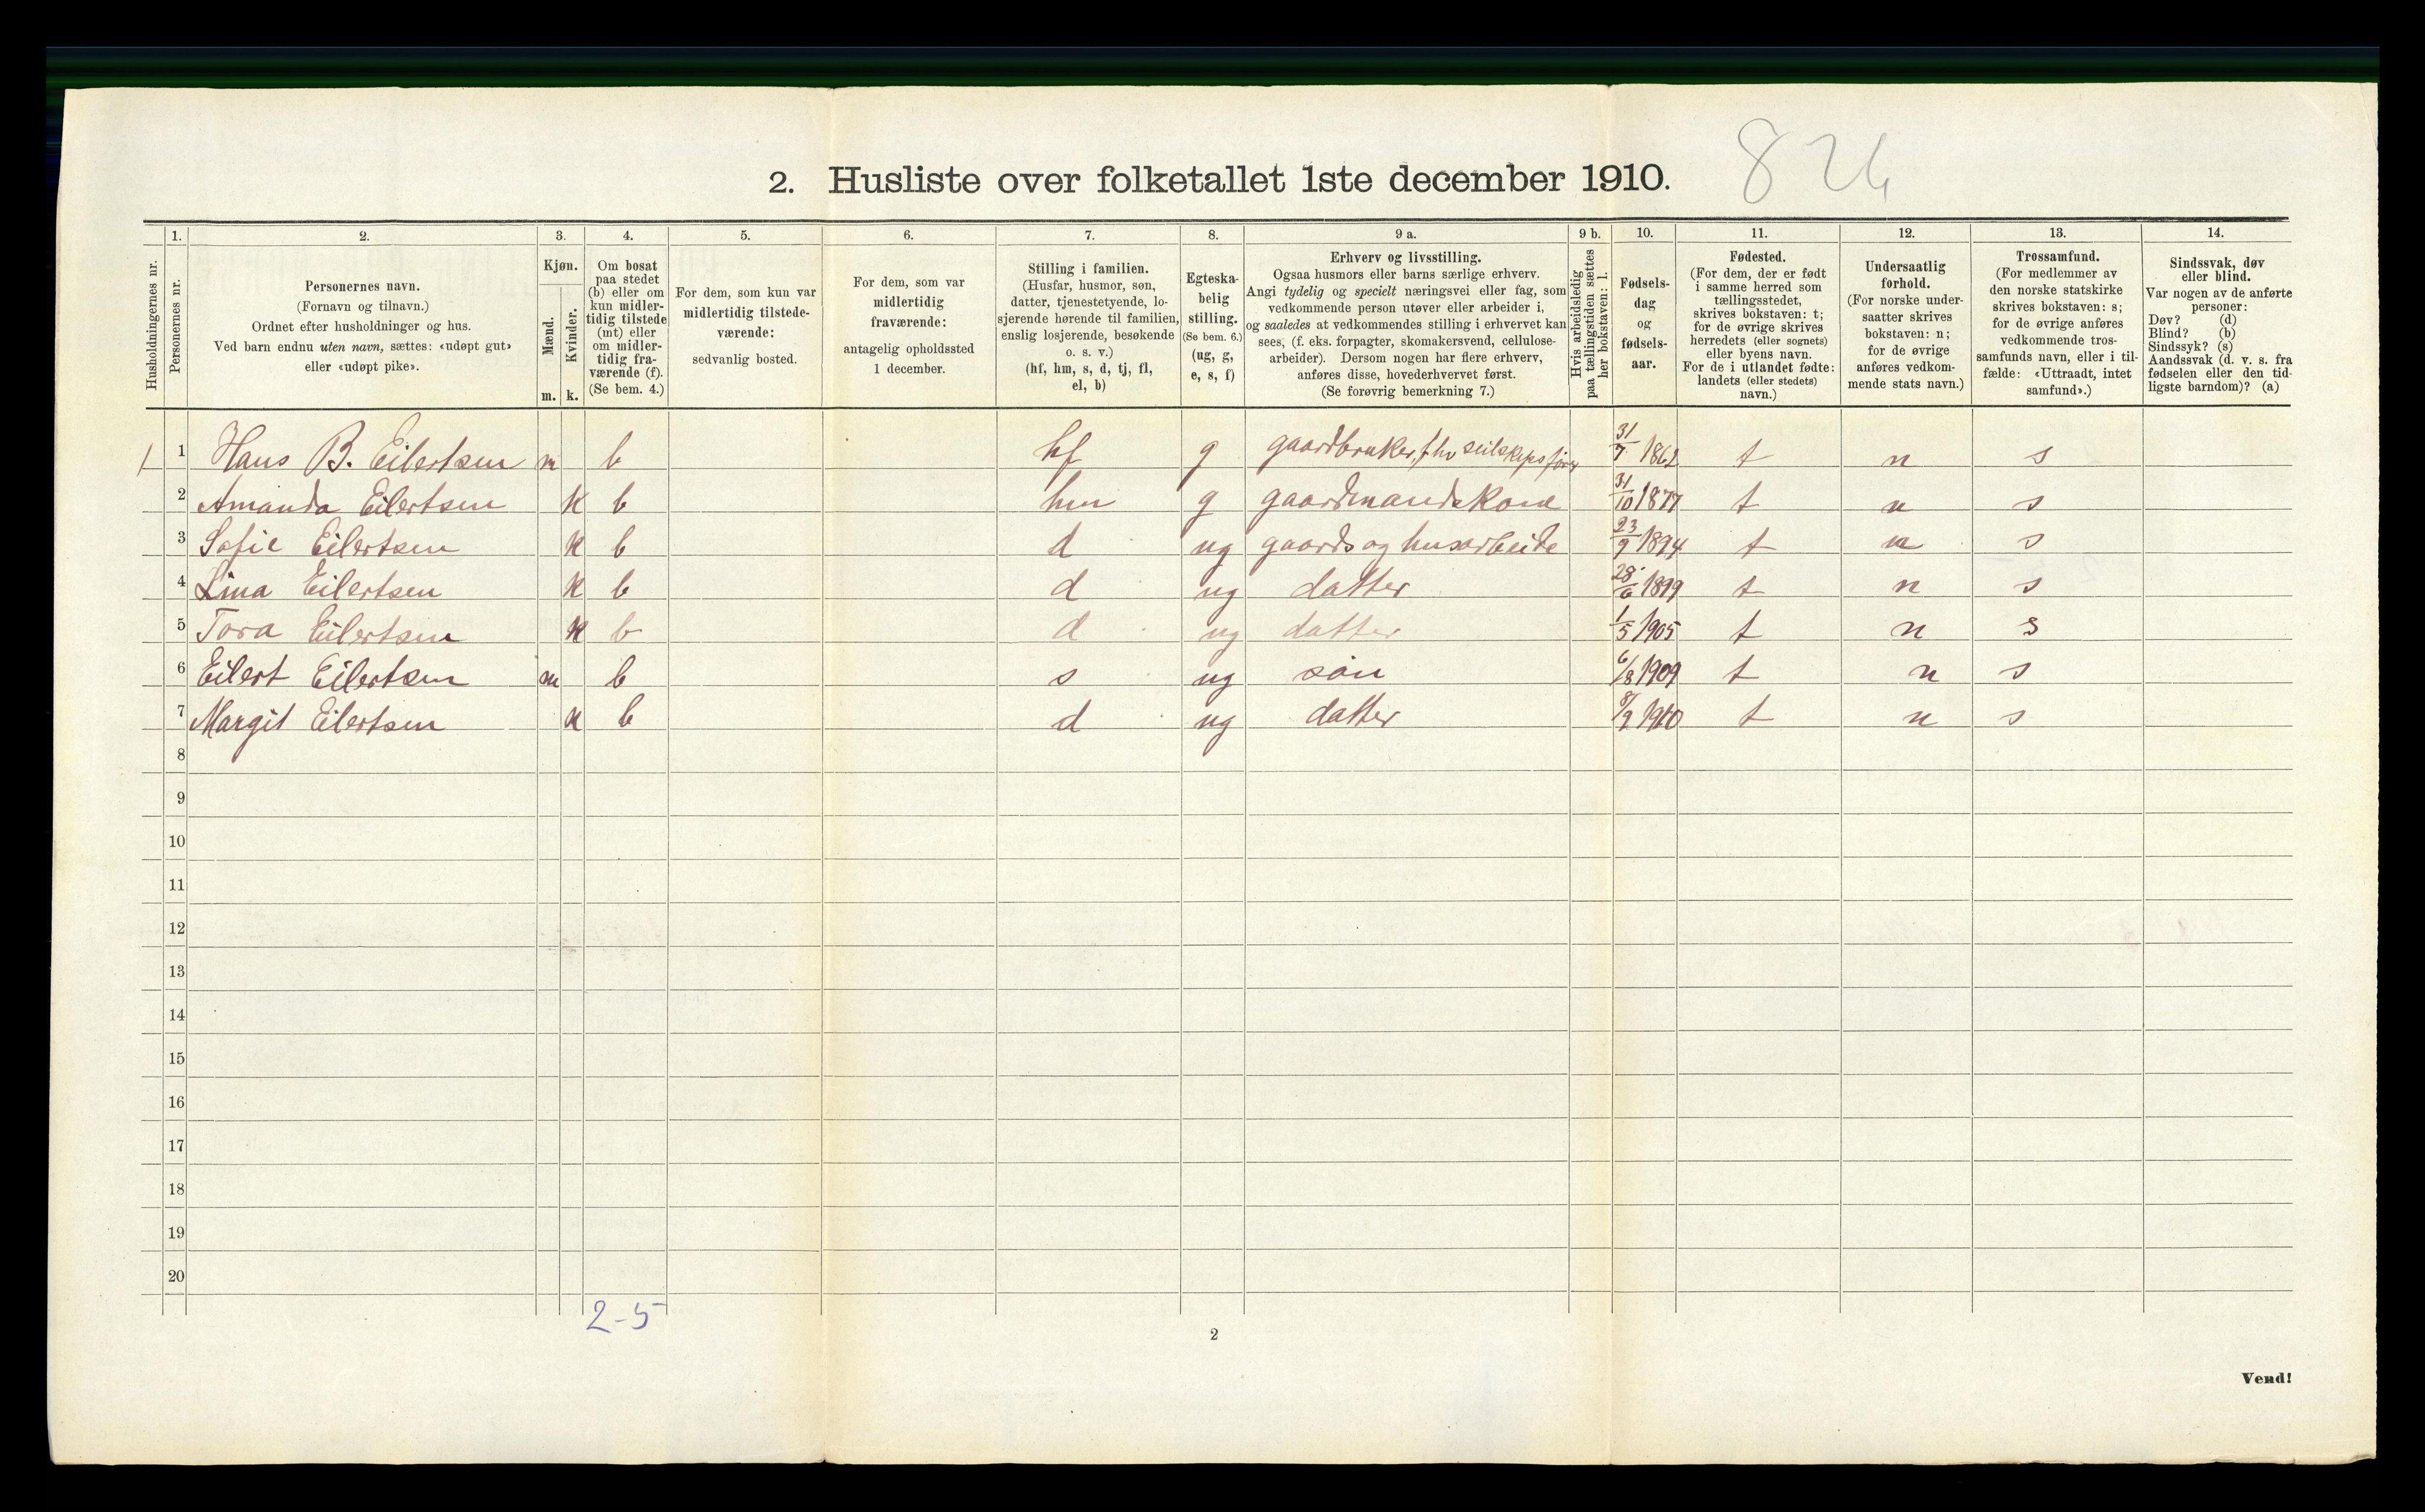 2. Husliste over folketallet 1ste december 1910.
826
Husholdningernes nr.
1.
Personernes nr.
2.
Personernes navn.
(Fornavn og tilnavn.)
Ordnet efter husholdninger og hus.
Ved barn endnu uten navn, sættes: «udøpt gut»
eller «udøpt pike».
3.
Kjøn.
Mænd.
Kvinder.
m. k.
4.
Om bosat
paa stedet
(b) eller om
kun midler-
tidig tilstede
(mt) eller
om midler-
tidig fra-
værende (f).
(Se bem. 4.)
5.
For dem, som kun var
midlertidig tilstede-
værende:
sedvanlig bosted.
6.
For dem, som var
midlertidig
fraværende:
antagelig opholdssted
1 december.
7.
Stilling i familien.
(Husfar, husmor, søn,
datter, tjenestetyende, lo-
sjerende hørende til familien,
enslig losjerende, besøkende
o. s. v.)
(hf, hm, s, d, tj, fl,
el, b)
8.
Egteska-
belig
stilling.
(Se bem. 6.)
(ug, g,
e, s, f)
9 a.
Erhverv og livsstilling.
Ogsaa husmors eller barns særlige erhverv.
Angi tydelig og specielt næringsvei eller fag, som
vedkommende person utøver eller arbeider i,
og saaledes at vedkommendes stilling i erhvervet kan
sees, (f. eks. forpagter, skomakersvend, cellulose-
arbeider). Dersom nogen har flere erhverv,
anføres disse, hovederhvervet først.
(Se forøvrig bemerkning 7.)
9 b.
Hvis arbeidsledig
paa tællingstiden sættes
her bokstaven: l.
10.
Fødsels-
dag
og
fødsels-
aar.
11.
Fødested.
(For dem, der er født
i samme herred som
tællingsstedet,
skrives bokstaven: t;
for de øvrige skrives
herredets (eller sognets)
eller byens navn.
For de i utlandet fødte:
landets (eller stedets)
navn.)
12.
Undersaatlig
forhold.
(For norske under-
saatter skrives
bokstaven: n;
for de øvrige
anføres vedkom-
mende stats navn.)
13.
Trossamfund.
(For medlemmer av
den norske statskirke
skrives bokstaven: s;
for de øvrige anføres
vedkommende tros-
samfunds navn, eller i til-
fælde: «Uttraadt, intet
samfund».)
14.
Sindssvak, døv
eller blind.
Var nogen av de anførte
personer:
Døv? (d)
Blind? (b)
Sindssyk? (s)
Aandssvak (d. v. s. fra
fødselen eller den tid-
ligste barndom)? (a)
1 1 Hans B. Eilertsen m b hf g gaardbruker, fhv seilskipsfører 31/7 1862 t n s
2 Amanda Eilertsen k b hm g gaardmandskone 31/10 1877 t n s
3 Sofie Eilertsen k b d ug gaards og husarbeide 23/9 1894 t n s
4 Lina Eilertsen k b d ug datter 28/6 1899 t n s
5 Tora Eilertsen k b d ug datter 1/5 1905 t n s
6 Eilert Eilertsen m b s ug søn 6/8 1909 t n s
7 Margit Eilertsen k b d ug datter 8/9 1910 t n s
8
9
10
11
12
13
14
15
16
17
18
19
20
2-5
2
Vend!